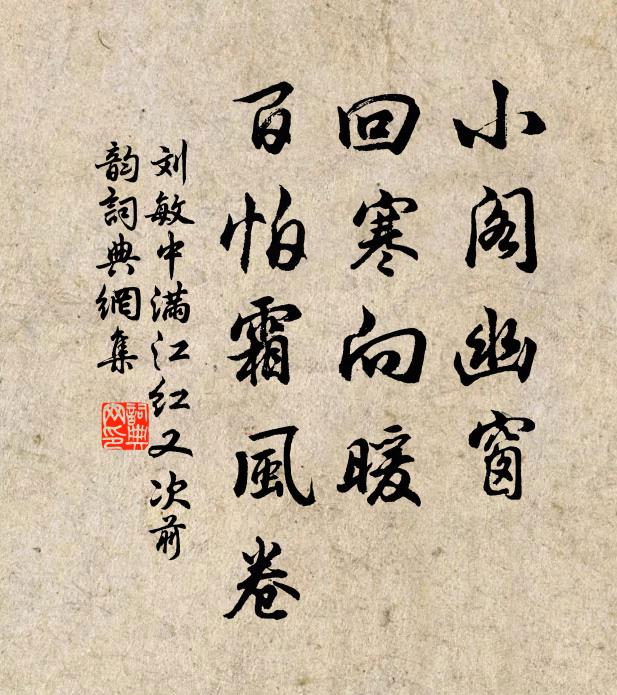 小阁幽窗
回寒向暖
百怕霜風卷
刘敏中满江红又次前
韵詞典網集
詞典
网印